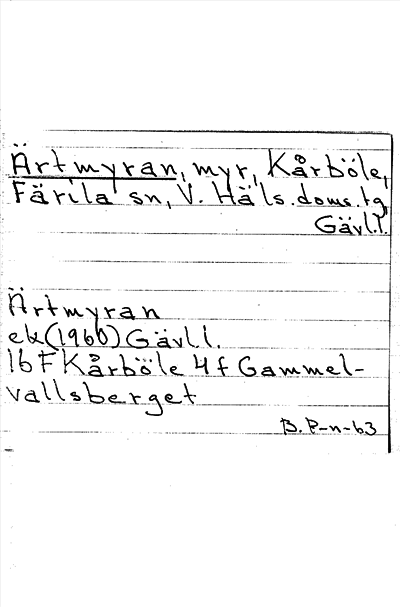 Ärtmyran, myr, Kårböle,
Färila sn, V. Häls. doms. tg,
Gävl.l.
Ärtmyran
ek(1960) Gävl.l.
16F Kårböle 4f Gammel-
vallsberget
B. P-n-63